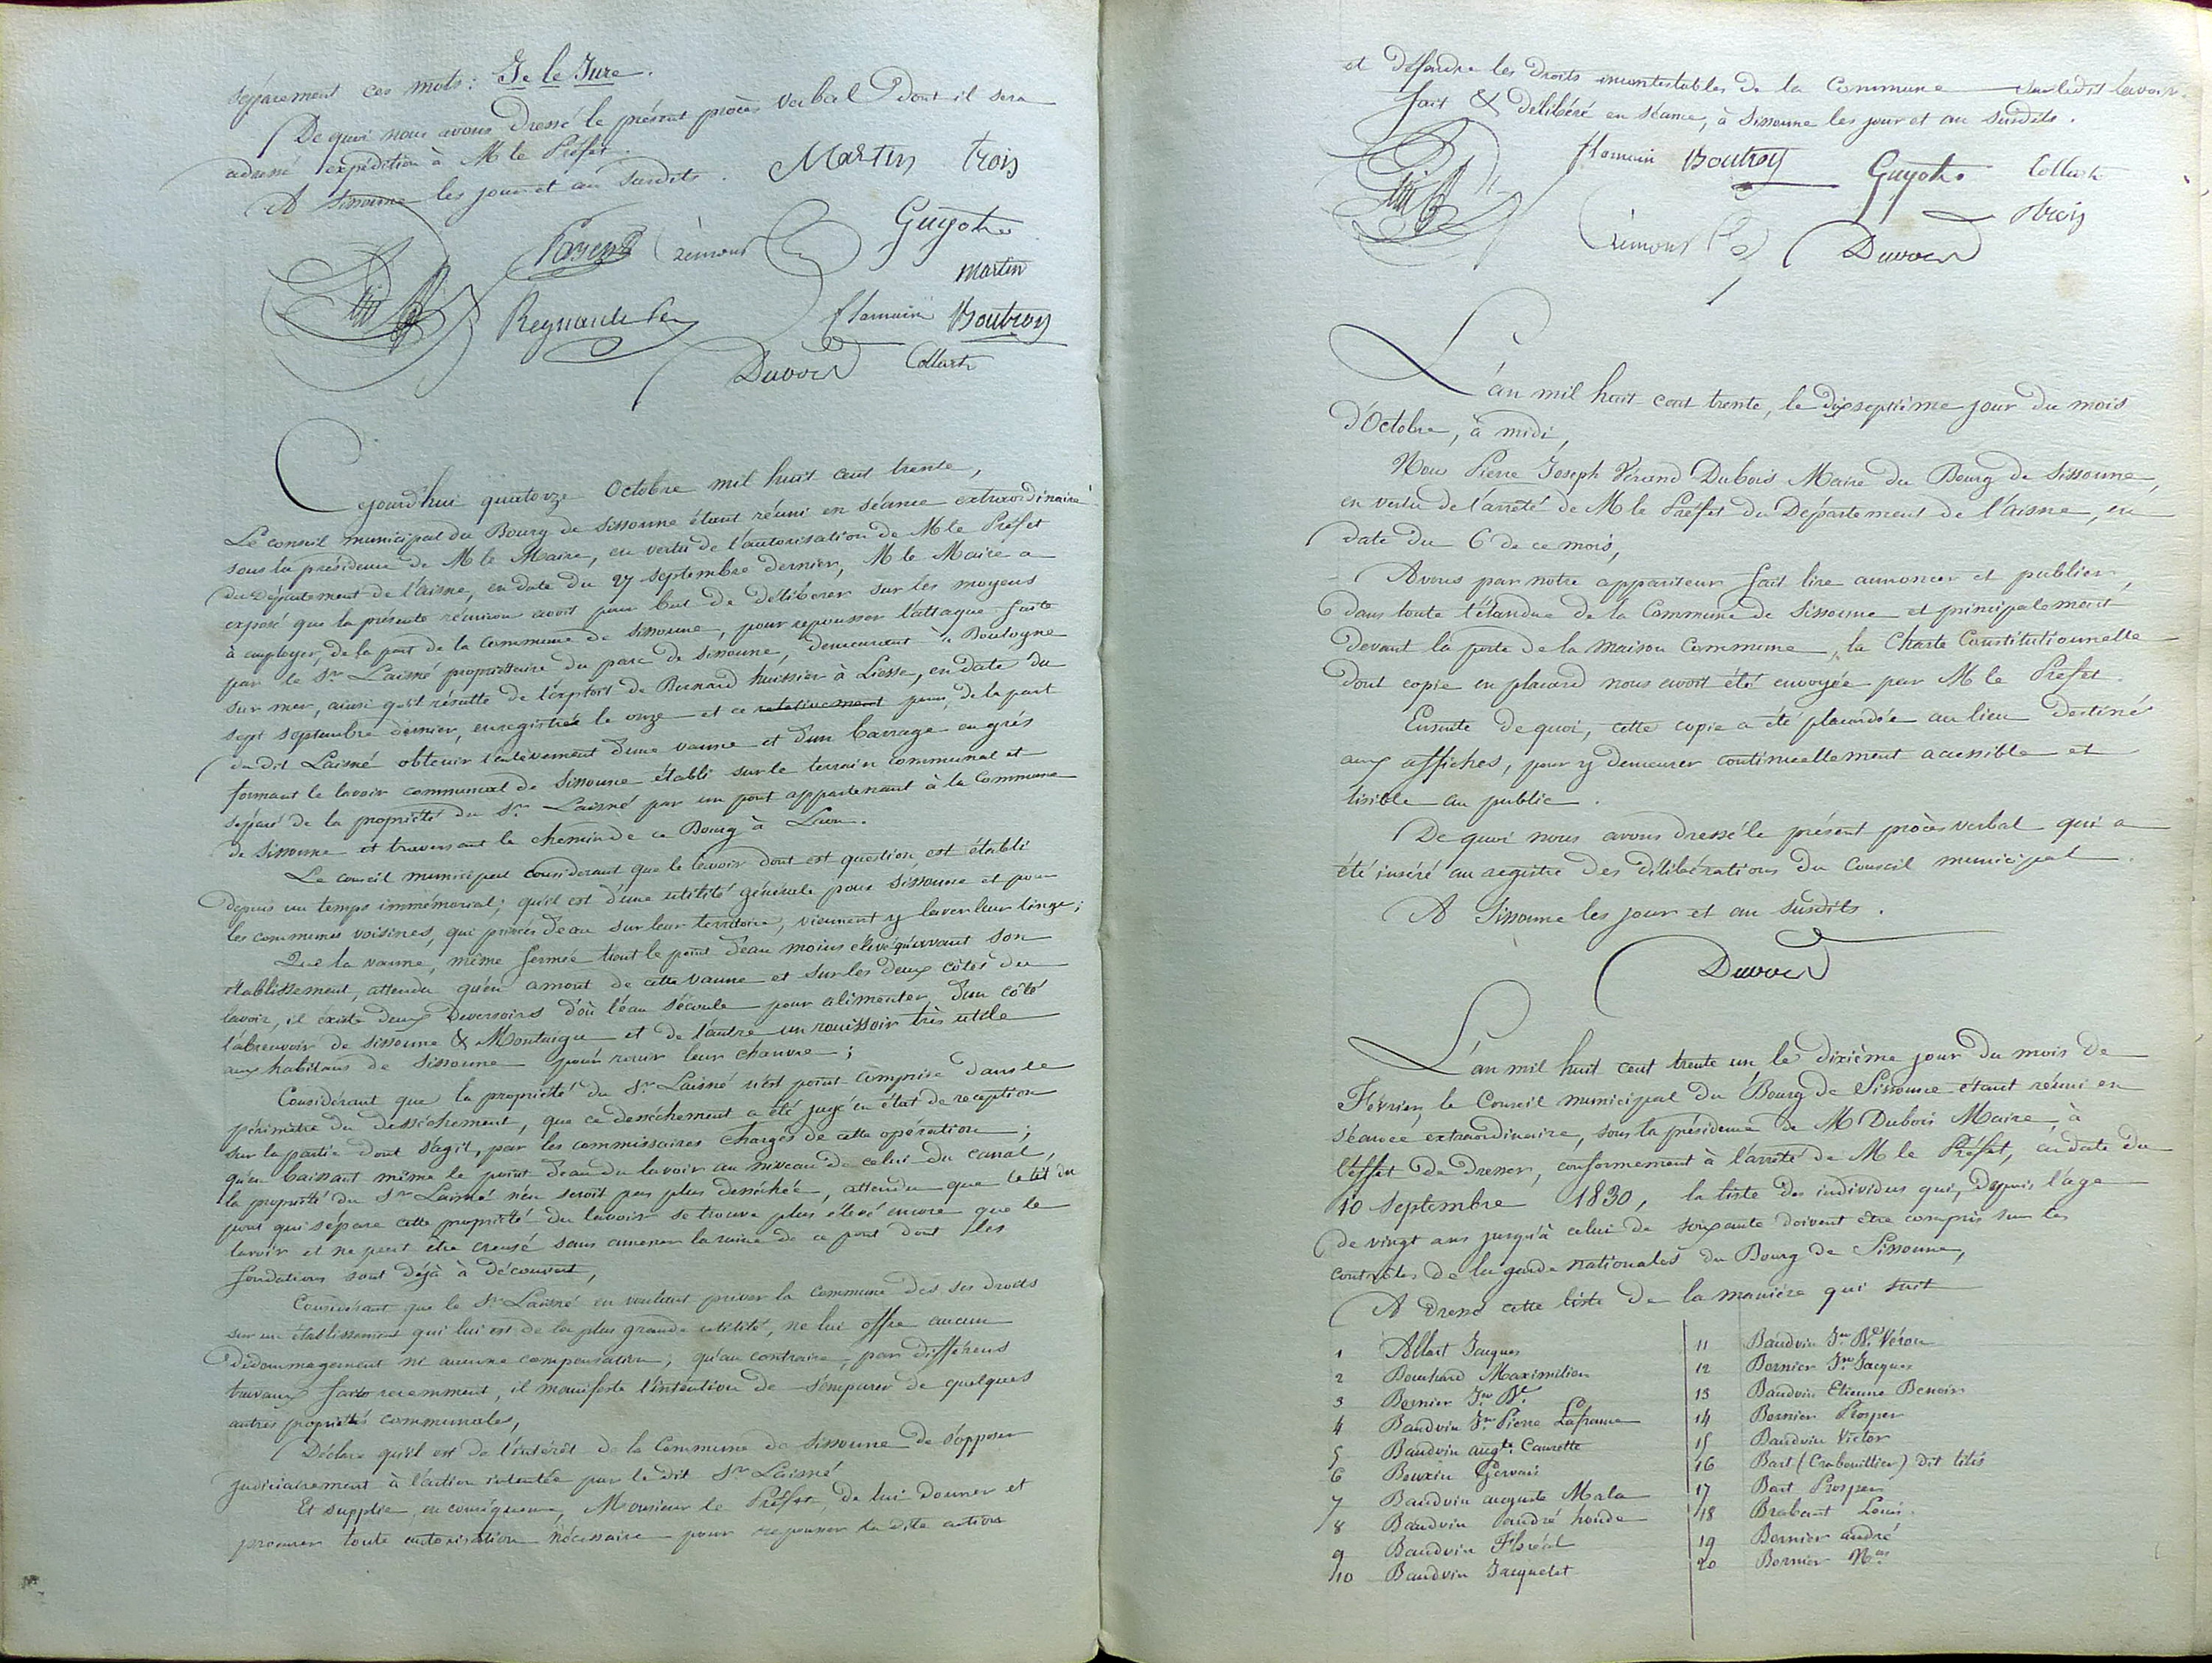 séparement ces mots : Je le Jure.
De quoi nous avons dressé le présent procès verbal dont il sera
adressé expédition à M le Préfet.
A Sissonne les jour et an susdits.
Martin trois
Guyot
Payen Crémont
martin
Regnault
flamain Boutroy
Dubois Collart
Cejourd'hui quatorze Octobre mil huit cent trente,
Le conseil municipal du Bourg de Sissonne étant réuni en séance extraordinaire
sous la présidence de M le Maire, en vertu de l'autorisation de M le Préfet
du Département de l'aisne, en date du 27 septembre dernier, M le Maire a
exposé que la présente réunion avoit pour but de délibérer sur les moyens
à employer, de la part de la commune de Sissonne, pour repousser l'attaque faite
par le Sr Laisné propriétaire du parc de Sissonne, demeurant à Boulogne
sur mer, ainsi qu'il résulte de l'exploit de Bernard huissier à Liesse, en date du
sept septembre dernier, enregistrée le onze et ce relativement pour, de la part
du dit Laisné obtenir l'enlèvement d'une vanne et d'un barrage en grés
formant le lavoir communal de Sissonne établi sur le terrain communal et
séparé de la propriété du Sr Laisné par un pont appartenant à la Commune
de Sissonne et traversant le chemin de ce Bourg à Laon.
Le conseil municipal considerant que le lavoir dont est question est établi
depuis un temps immémorial ; qu'il est d'une utilité générale pour Sissonne et pour
les communes voisines, qui privées d'eau sur leur territoire, viennent y laver leur linge ;
Que la vanne, même fermée tient le point d'eau moins elevé qu'avant son
établissement, attendu qu'en amont de cette vanne et sur les deux côtés du
lavoir, il existe deux deversoirs d'où l'eau s'écoule pour alimenter, d'un côté
l'abreuvoir de Sissonne & Montaigu et de l'autre un rouissoir très utile
aux habitans de Sissonne pour rouir leur chanvre ;
Considérant que la propriété du Sr Laisné n'est point comprise dans le
périmètre du desséchement, que ce desséchement a été jugé en état de reception
sur la partie dont s'agit, par les commissaires chargés de cette opération ;
qu'en baissant même le point d'eau du lavoir au niveau de celui du canal,
la propriété du Sr Laisné n'en seroit pas plus desséchée, attendu que le lit du
pont qui sépare cette propriété du lavoir se trouve plus élevé encore que le
lavoir et ne peut être creusé sans amener la ruine de ce pont dont les
fondations sont déjà à découvert,
Considérant que le Sr Laisné en voulant priver la commune des ses droits
sur un établissement qui lui est de la plus grande utilité, ne lui offre aucun
dédommagement ni aucune compensation ; qu'au contraire, par différens
travaux faits recemment, il manifeste l'intention de s'emparer de quelques
autres propriétés communales,
Déclare qu'il est de l'intérêt de la Commune de Sissonne de s'opposer
judiciairement à l'action intentée par le dit Sr Laisné
Et supplie, en conséquence, Monsieur le Préfet, de lui donner et
procurer toute autorisation nécessaire pour repousser la dite action
et défendre les droits incontestables de la Commune sur ledit lavoir.
fait & délibéré en séance, à Sissonne les jour et an susdits.
flamain Boutroy Guyot Collart
trois
Crémont Dubois
L'an mil huit cent trente, le dixseptième jour du mois
d'Octobre, à midi,
Nous Pierre Joseph Vérand Dubois Maire du Bourg de Sissonne,
en vertu de l'arrêté de M le Préfet du Département de l'aisne, en
date du 6 de ce mois,
Avons par notre appariteur fait lire annoncer et publier,
dans toute l'étandue de la Commune de Sissonne et principalement
devant la porte de la maison Commune, la Charte Constitutionnelle
dont copie en placard nous avoit été envoyée par M le Préfet.
Ensuite de quoi, cette copie a été placardée au lieu destiné
aux affiches, pour y demeurer continuellement accessible et
lisible au public.
De quoi nous avons dressé le présent procès verbal qui a
été inséré au registre des délibérations du Conseil municipal.
A Sissonne les jour et an susdits.
Dubois
L'an mil huit cent trente un, le dixième jour du mois de
Février, le Conseil municipal du Bourg de Sissonne étant réuni en
séance extraordinaire, sous la présidence de M Dubois Maire, à
l'effet de dresser, conformement à l'arrêté de M le Préfet, en date du
10 Septembre 1830, la liste des individus qui, depuis l'age
de vingt ans jusqu'à celui de soixante doivent être compris sur les
controles de la garde nationales du Bourg de Sissonne,
A dressé cette liste de la manière qui suit
1 Allart Jacques
2 Bouchard Maximilien
3 Bernier Jn Bte
4 Baudvin Jn Pierre Lafrance
5 Baudvin augte Caurette
6 Bouxin Gervais
7 Baudvin auguste Mala
8 Baudvin andré houde
9 Baudvin Floréal
10 Baudvin Jacquelet
11 Baudvin Jn Bte Véron
12 Bernier Jn Jacques
13 Baudvin Etienne Benoit
14 Bernier Prosper
15 Baudvin Victor
16 Bart (Crabouillier) dit titis
17 Bart Prosper
18 Brabant Louis.
19 Bernier andré
20 Bernier Nas